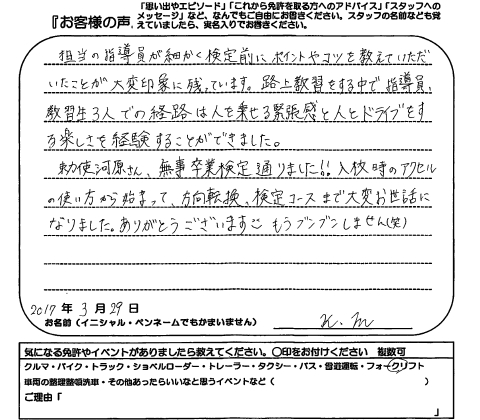 『お客様の声
「思い出やエピソード」「これから免許を取る方へのアドバイス」「スタッフへの
メッセージ」など、なんでもご自由にお書きください。スタッフの名前なども覚
えていましたら、実名入りでお書きください。
担当の指導員が細かく検定前にポイントやコツを教えていただ
いたことが大変印象に残っています。路上教習をする中で指導員、
教習生3人での経路は人を乗せる緊張感と人とドライブをす
る楽しさを経験することができました。
勅使河原さん、無事卒業検定通りました!! 入校時のアクセル
の使い方から始まって、方向転換、検定コースまで大変お世話に
なりました。ありがとうございます もうブンブンしません(笑)
2017年 3月 29日
お名前(イニシャル・ペンネームでもかまいません) K.M
気になる免許やイベントがありましたら教えてください。〇印をお付けください 複数可
クルマ・バイク・トラック・ショベルローダー・トレーラー・タクシー・バス・雪道運転・フォークリフト
車両の整理整頓洗車・その他あったらいいなと思うイベントなど( )
ご理由「 」